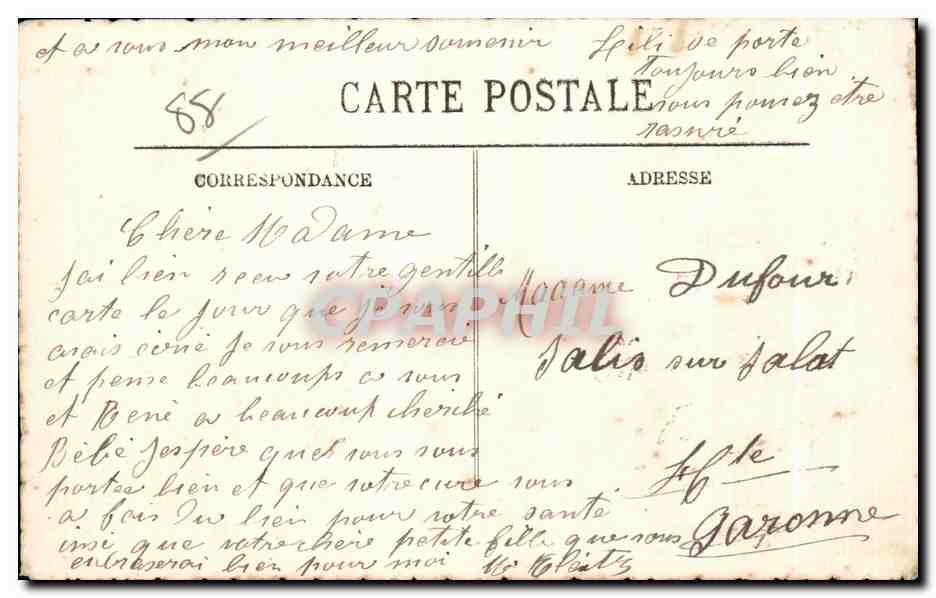 et a vous mon meilleur souvenir
Lili se porte
toujours bien
vous pouvez etre
rasuré
88
CARTE POSTALE
CORRESPONDANCE
ADRESSE
Chère Madame
J'ai bien recu votre gentille
carte le jour que je vous
avais écrie je vous remercie
et pense beaucoups a vous
et René a beaucoup cherché
Bébé J'espère que vous vous
portée bien et que votre cure vous
a fais du bien pour votre santé
insi que votre chère petite fille que vous
enbraserai bien pour moi
Madame Dufour
Salis sur Salat
Hte
Garonne
CPAPHIL